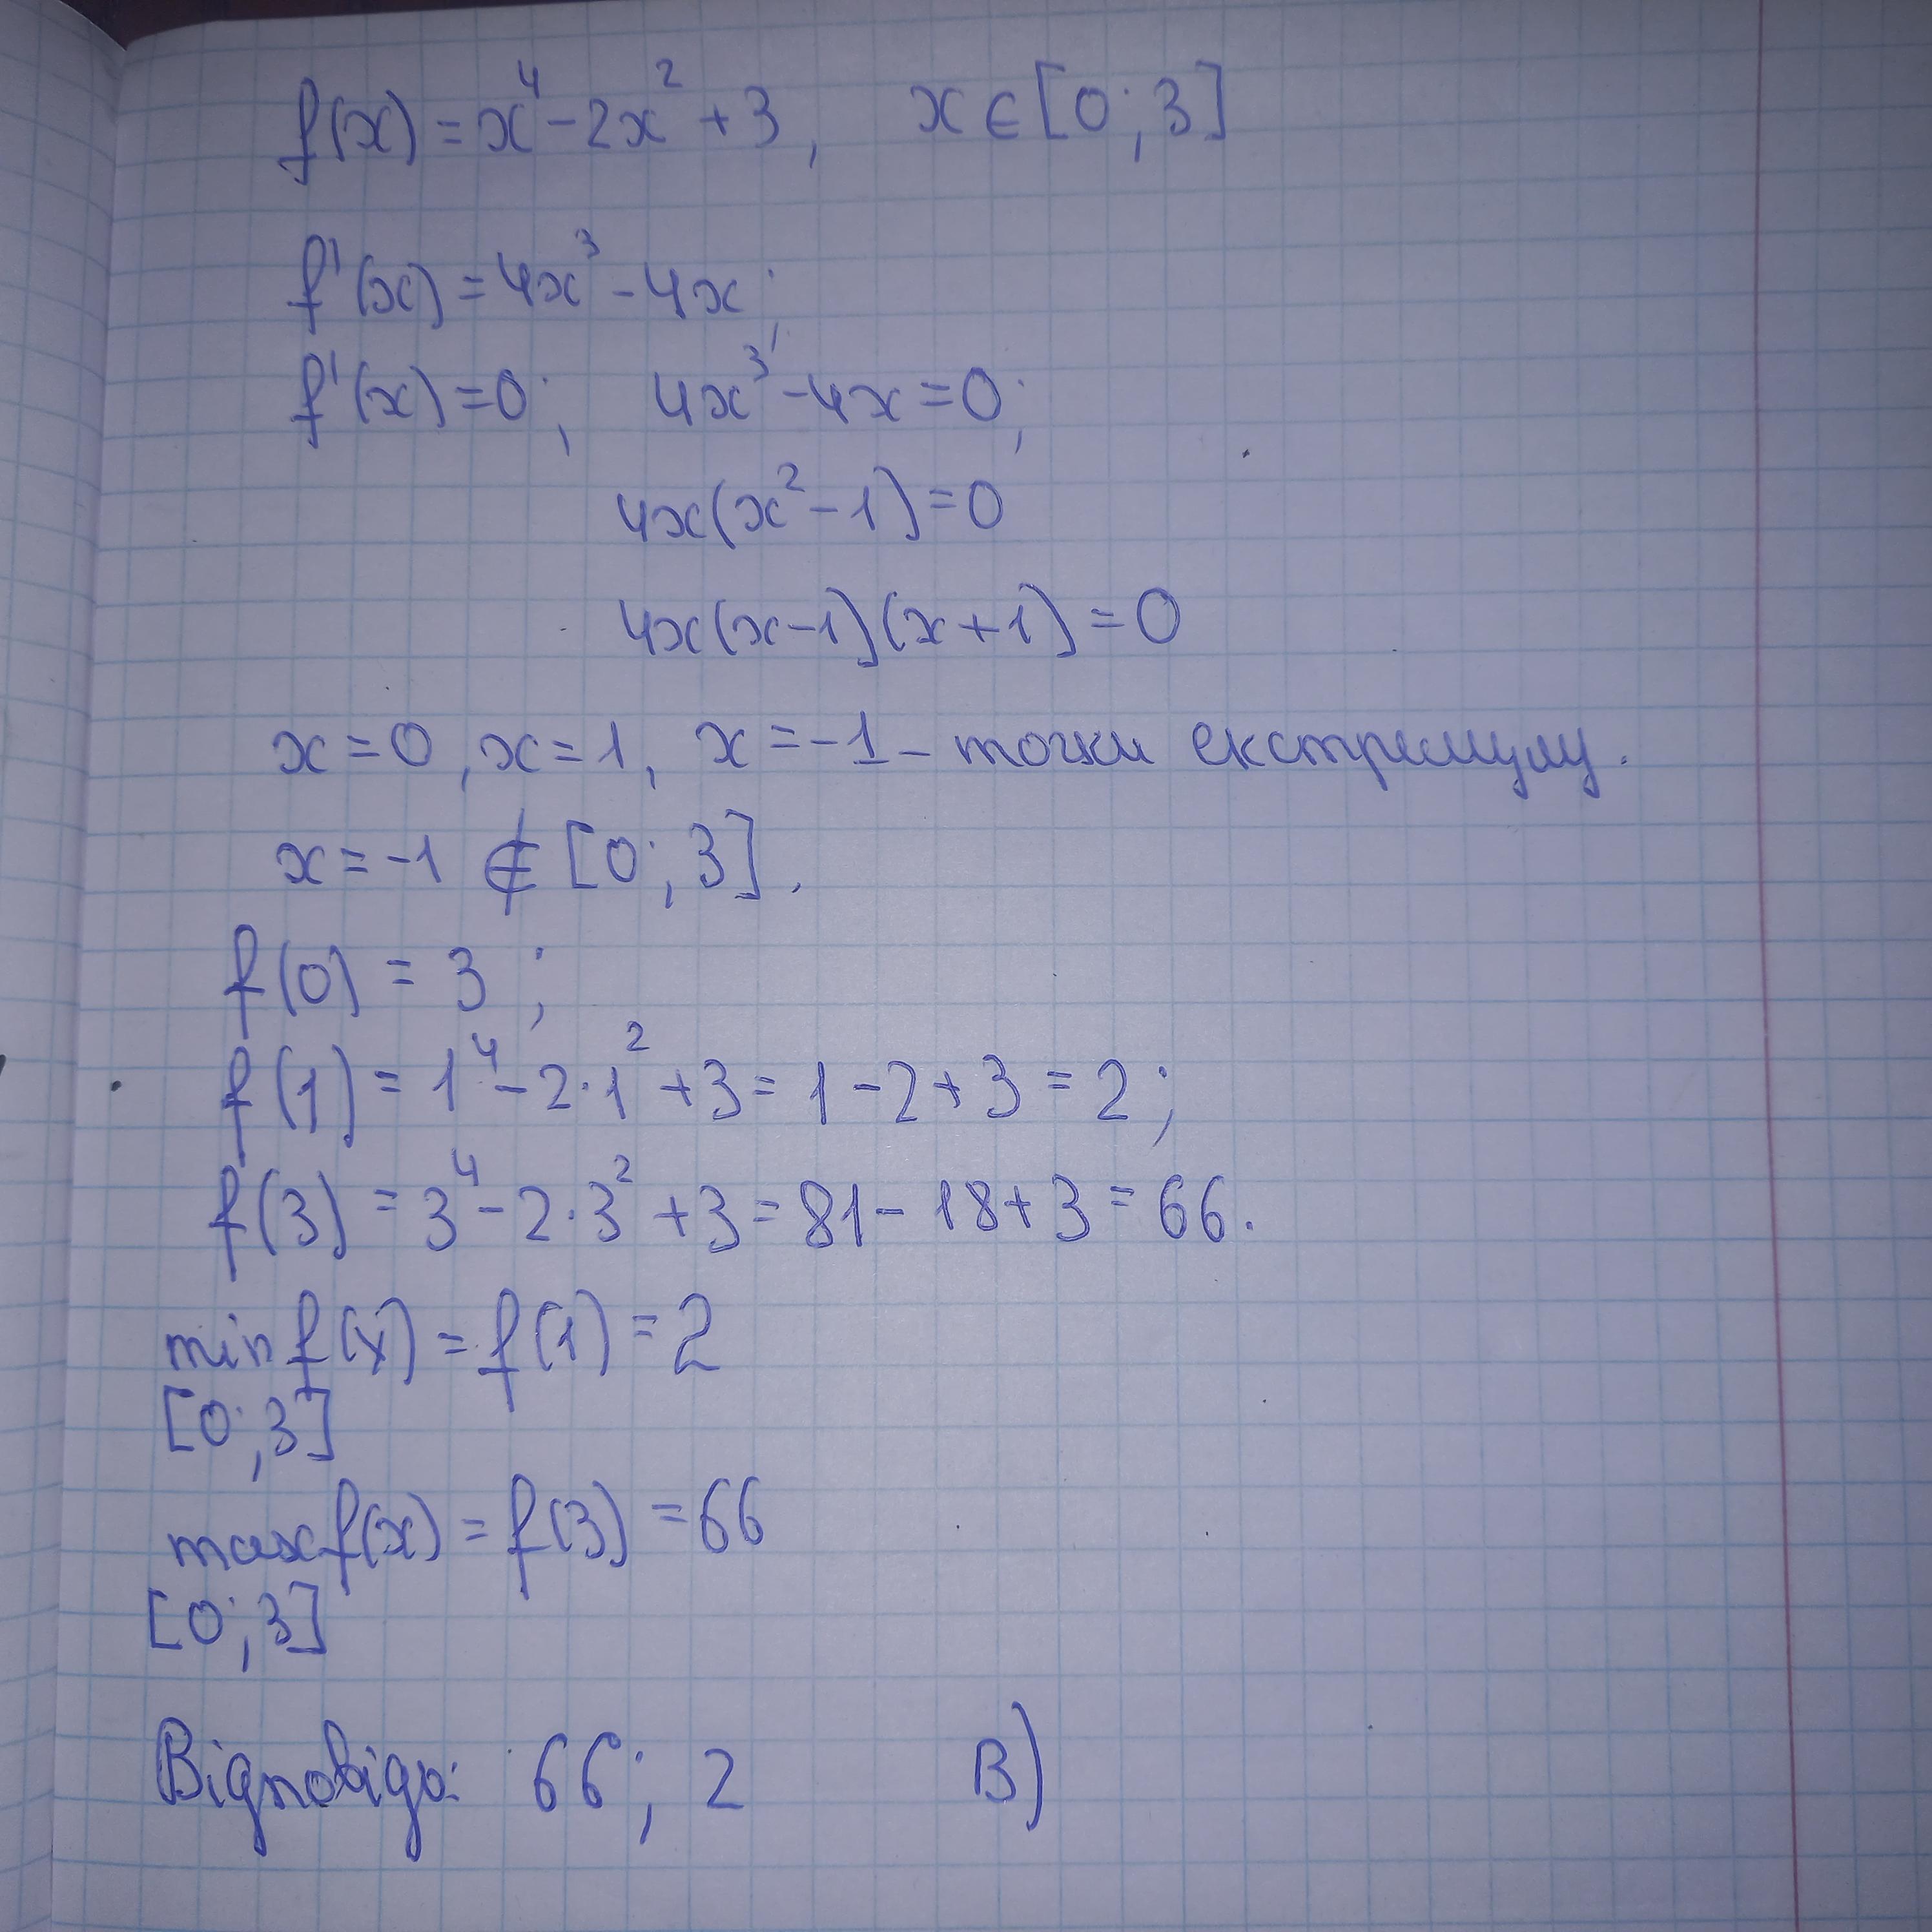 f(x) = x⁴ - 2x² + 3, x ∈ [0; 3]
f'(x) = 4x³ - 4x;
f'(x) = 0; 4x³ - 4x = 0;
4x(x² - 1) = 0
4x(x-1)(x+1) = 0
x = 0, x = 1, x = -1 - точки екстремуму.
x = -1 ∉ [0; 3].
f(0) = 3;
f(1) = 1⁴ - 2·1² + 3 = 1 - 2 + 3 = 2;
f(3) = 3⁴ - 2·3² + 3 = 81 - 18 + 3 = 66.
min f(x) = f(1) = 2
[0; 3]
max f(x) = f(3) = 66
[0; 3]
Відповідь: 66; 2 В)